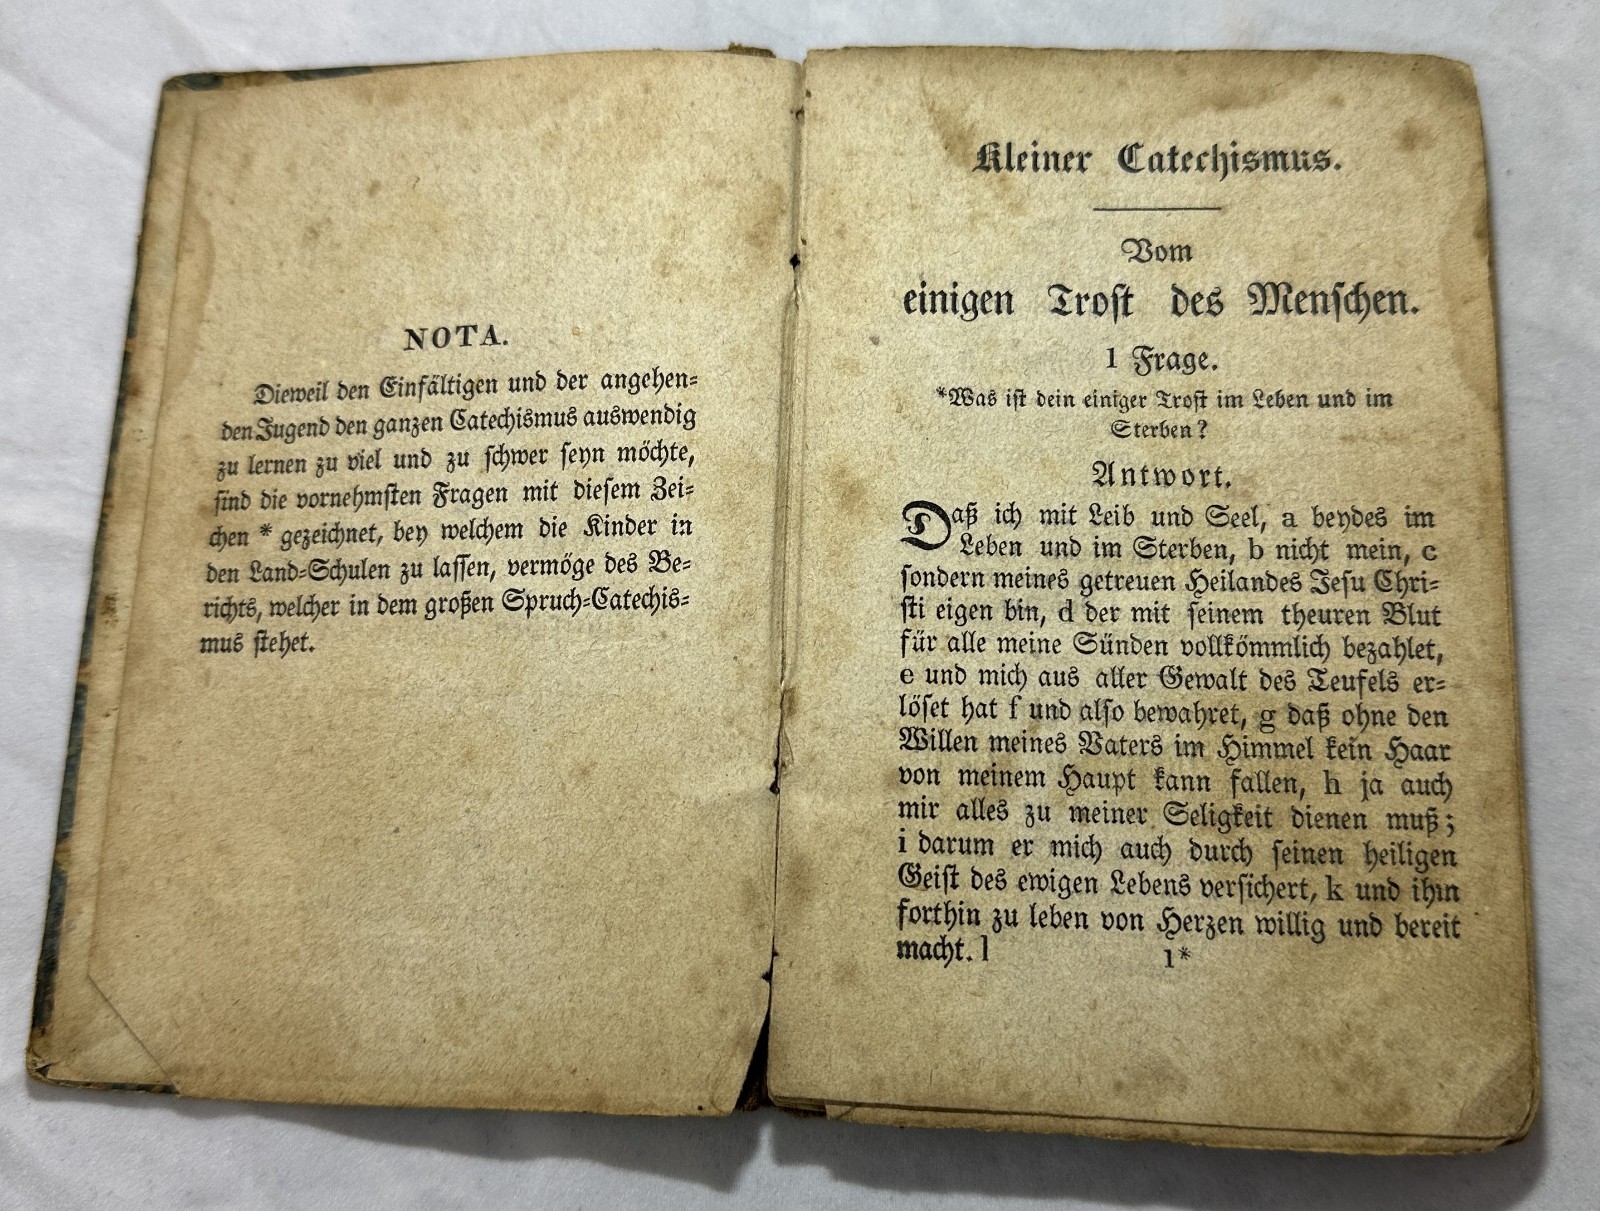 NOTA.
Dieweil den Einfältigen und der angehen=
den Jugend den ganzen Catechismus auswendig
zu lernen zu viel und zu schwer seyn möchte,
sind die vornehmsten Fragen mit diesem Zei=
chen * gezeichnet, bey welchem die Kinder in
den Land=Schulen zu lassen, vermöge des Be=
richts, welcher in dem großen Spruch=Catechis=
mus stehet.
Kleiner Catechismus.
Vom
einigen Trost des Menschen.
1 Frage.
*Was ist dein einiger Trost im Leben und im
Sterben?
Antwort.
Daß ich mit Leib und Seel, a beydes im
Leben und im Sterben, b nicht mein, c
sondern meines getreuen Heilandes Jesu Chri=
sti eigen bin, d der mit seinem theuren Blut
für alle meine Sünden vollkömmlich bezahlet,
e und mich aus aller Gewalt des Teufels er=
löset hat f und also bewahret, g daß ohne den
Willen meines Vaters im Himmel kein Haar
von meinem Haupt kann fallen, h ja auch
mir alles zu meiner Seligkeit dienen muß;
i darum er mich auch durch seinen heiligen
Geist des ewigen Lebens versichert, k und ihm
forthin zu leben von Herzen willig und bereit
macht. l
1*